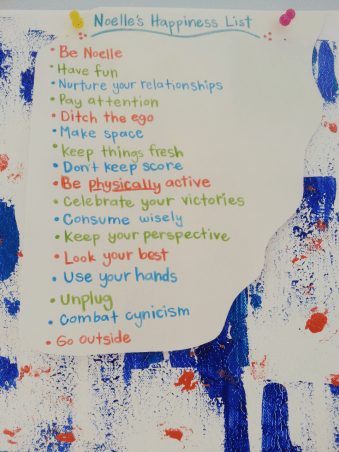 Noelle's Happiness List
• Be Noelle
• Have fun
• Nurture your relationships
• Pay attention
• Ditch the ego
• Make space
• Keep things fresh
• Don't keep score
• Be physically active
• Celebrate your victories
• Consume wisely
• Keep your perspective
• Look your best
• Use your hands
• Unplug
• Combat cynicism
• Go outside